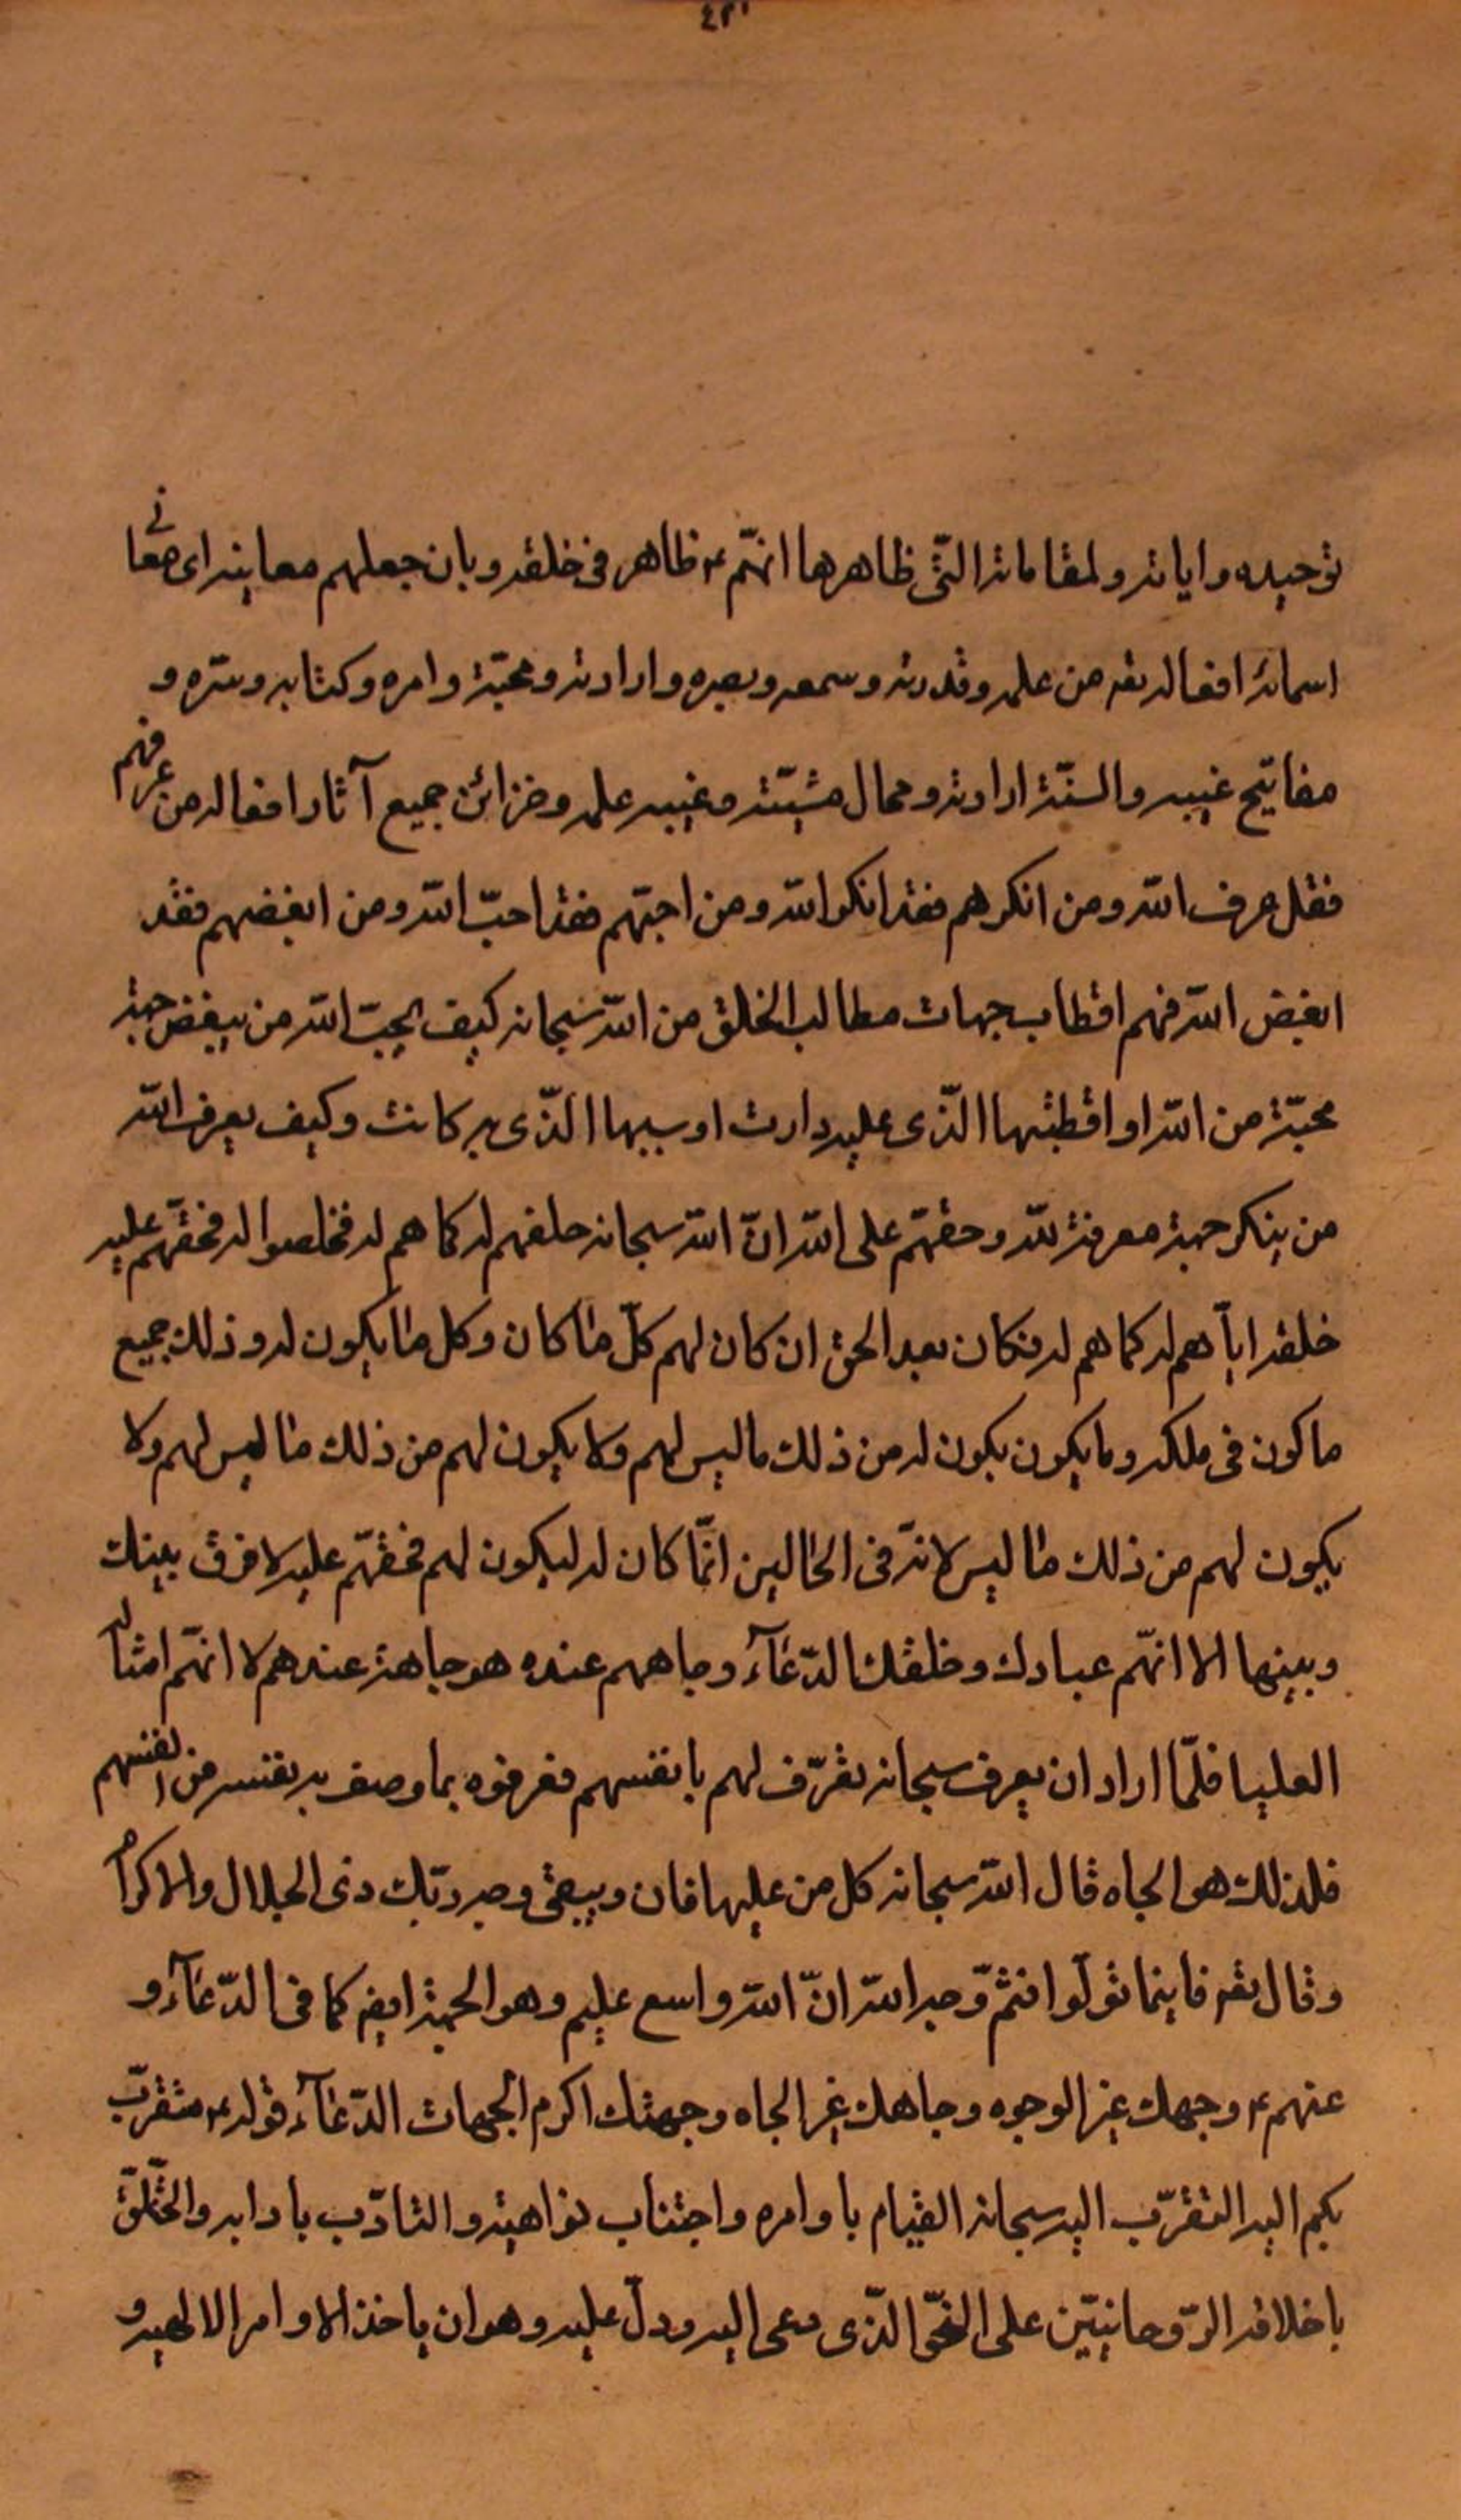 ٤٢١
توحيده واياته ولمقاماته التّى ظاهرها انهّم ع ظاهر فى خلقه وبان جعلهم معاينه اى معانى
اسمائه افعاله تعه من علمه وقدرته وسمعه وبصره وارادته ومحبّة وامره وكتابه وسرّه و
مفاتيح غيبه والسنّة ارادته ومحال مشيّته وغيبه علمه وخزائن جميع آثار افعاله من عرفهم
فقل عرف الله ومن انكرهم فقد انكر الله ومن احبّهم فقد احبّ الله ومن ابغضهم فقد
ابغض الله فهم اقطاب جهات مطالب الخلق من الله سبحانه كيف يحبّ الله من يبغض جهة
محبّة من الله او اقطبها الذّى عليه دارت او سببها الذّى به كانت وكيف يعرف الله
من ينكر جهة معرفة لله وحقهّم على الله انّ الله سبحانه خلقهم له كما هم له فخلصوا له فحقّهم عليه
خلقه ايّاهم له كما هم له فكان بعد الحق ان كان لهم كلّ ما كان وكل ما يكون له وذلك جميع
ما كون فى ملكه وما يكون يكون له من ذلك ما ليس لهم ولا يكون لهم من ذلك ما ليس لهم ولا
يكون لهم من ذلك ما ليس لانّه فى الحالين انّما كان له ليكون لهم فحقهّم عليه لا فرق بينك
وبينها الا انهّم عبادك وخلقك الدّعآء وجاههم عنده هو جاهة عندهم لا انهّم امثاله
العليا فلمّا اراد ان يعرف سبحانه تعرّف لهم بانفسهم فعرفوه بما وصف به نفسه من انفسهم
فلذلك هو الجاه قال الله سبحانه كل من عليها فان ويبقى وجه ربّك ذى الجلال والاكرام
وقال تعه فاينما تولّوا فثمّ وّجه الله انّ الله واسع عليم وهو الجهة ايضه كما فى الدّعآء و
عنهم ع وجهك غير الوجوه وجاهك غير الجاه وجهتك اكرم الجهات الدّعآء قوله ع متقرّب
بكم اليه التقرّب اليه سبحانه القيام باوامره واجتناب نواهيه والتادّب بادابه والتخلّق
باخلاقه الرّوحانيّين على النحّو الذّى دعى اليه ودلّ عليه وهو ان ياخذ الاوامر الالهيه و